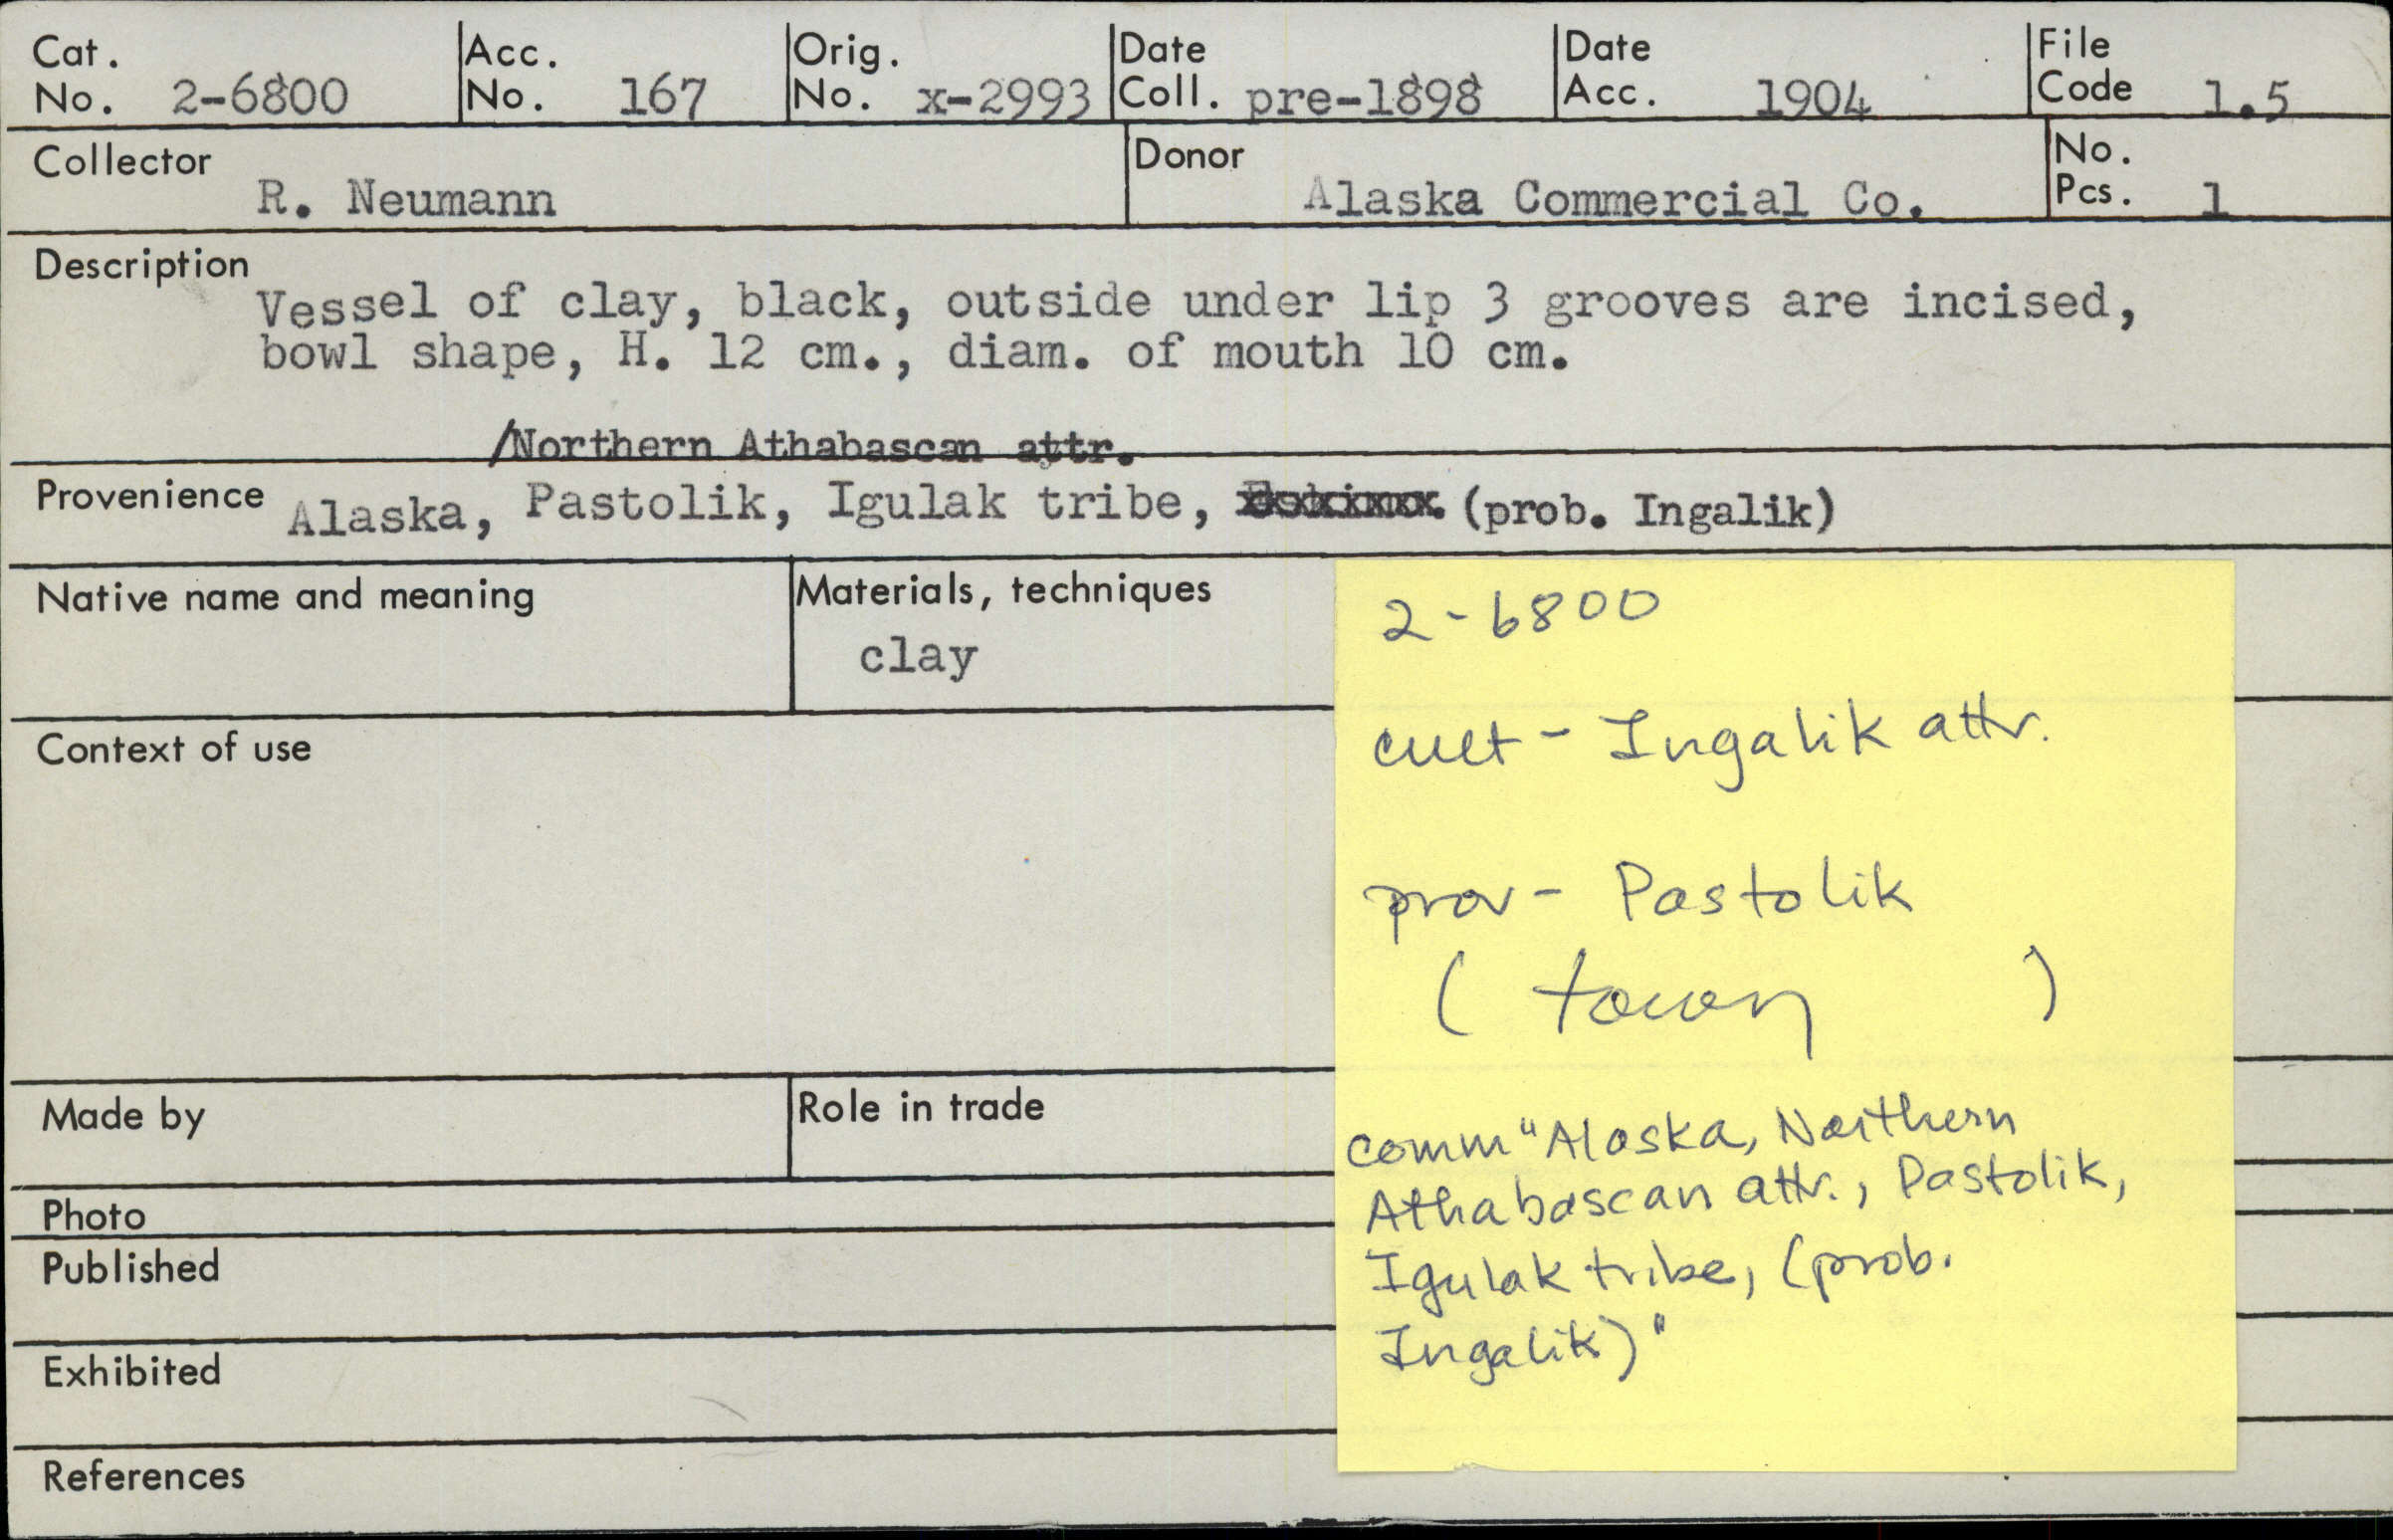 Cat. No. 2-6800
Acc. No. 167
Orig. No. x-2993
Date Coll. pre-1898
Date Acc. 1904
File Code 1.5
Collector R. Neumann
Donor Alaska Commercial Co.
No. Pcs. 1
Description
Vessel of clay, black, outside under lip 3 grooves are incised,
bowl shape, H. 12 cm., diam. of mouth 10 cm.
/Northern Athabascan attr.
Provenience Alaska, Pastolik, Igulak tribe, (prob. Ingalik)
Native name and meaning
Materials, techniques
clay
Context of use
Made by
Role in trade
Photo
Published
Exhibited
References
2-6800
cult - Ingalik attr.
prov - Pastolik
( town )
comm "Alaska, Northern
Athabascan attr., Pastolik,
Igulak tribe, (prob.
Ingalik)"